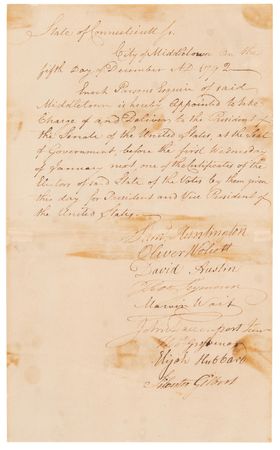 State of Connecticutt Ss.
City of Middletown on the
fifth Day of December AD. 1792 —
Enoch Parsons Esquire of said
Middletown is hereby Appointed to take
Charge of and Deliver to the President of
the Senate of the United States, at the Seat
of Government, before the first Wednesday
of January next, one of the Certificates of the
Electors of said State of the Votes by them given
this day for President and Vice President of
the United States —
Saml Huntington
Oliver Wolcott
David Austin
Thos Seymour
Marvin Wait
John Davenport
Grosvenor
Elijah Hubbard
Sylvester Gilbert